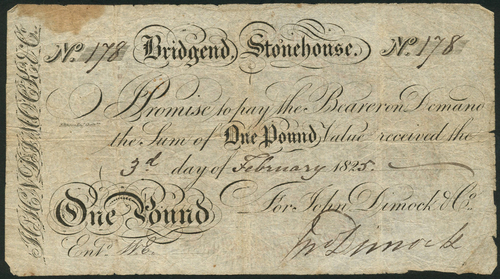 No. 178 Bridgend, Stonehouse. No. 178
I Promise to pay the Bearer on Demand
the Sum of One Pound Value received the
3d day of February 1825.
One Pound For John Dimock & Co.
Entd. W.E. Jno Dimock